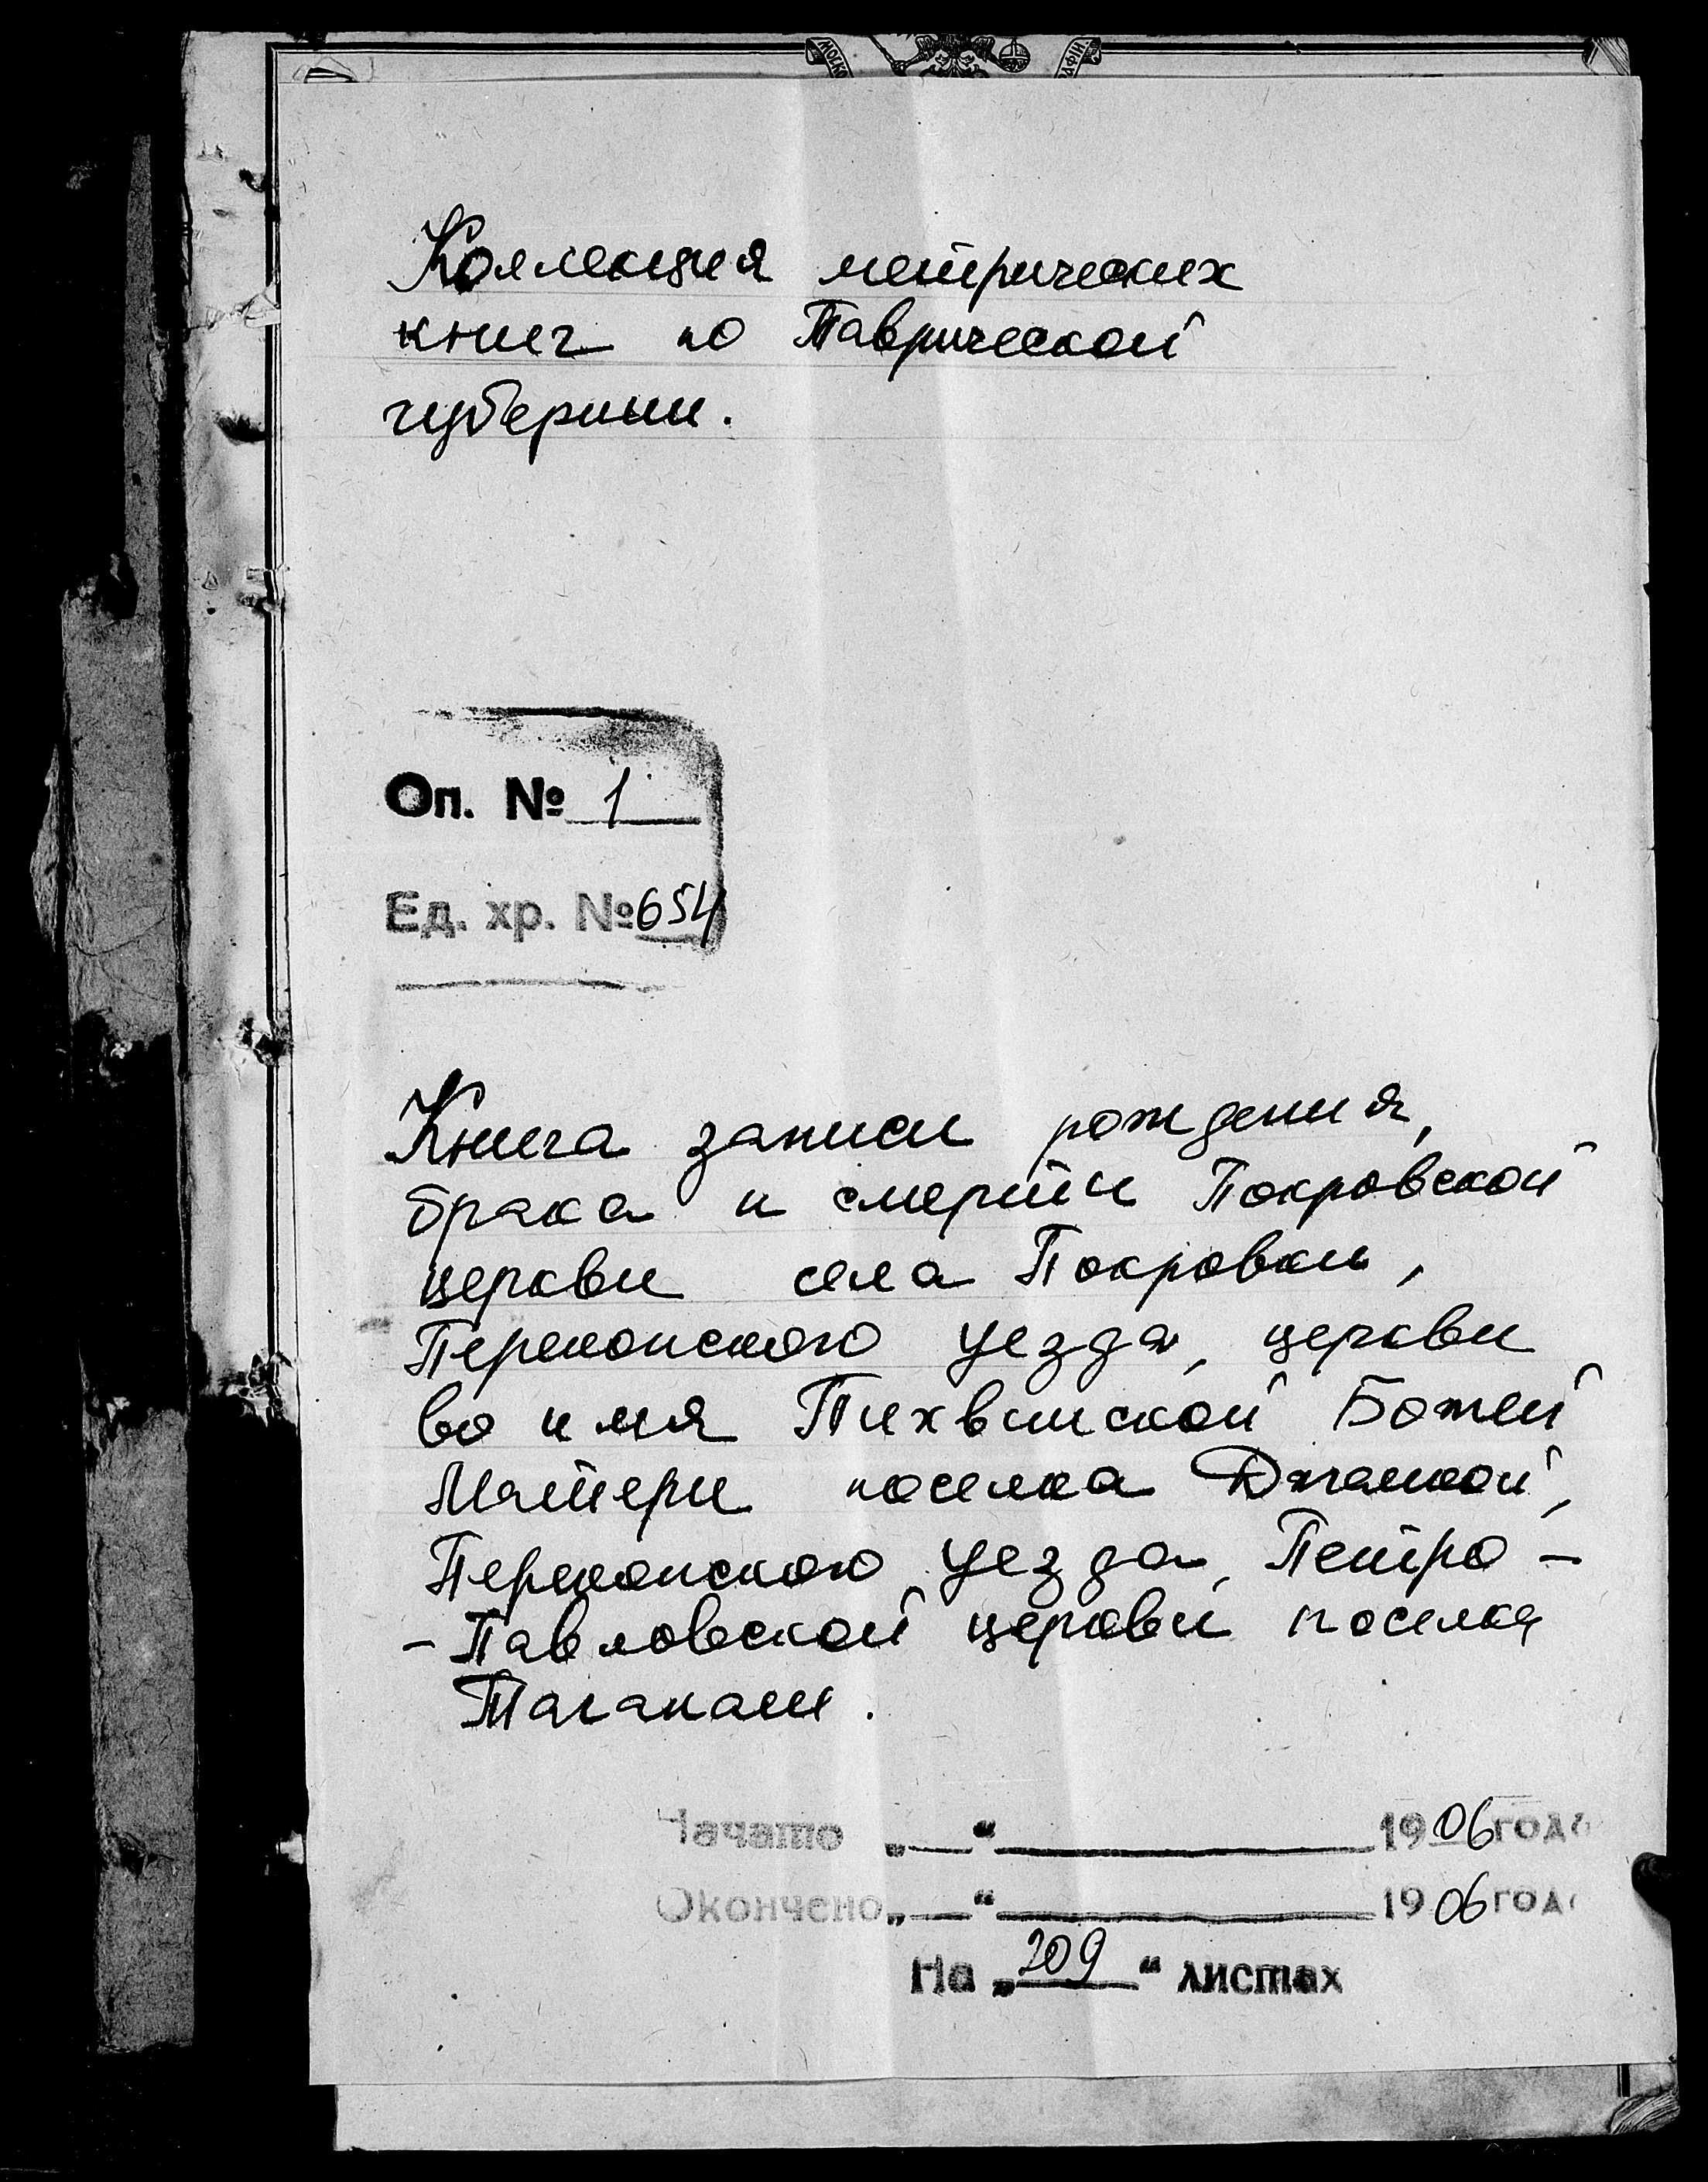 Коллекция метрических
книг по Таврической
губернии.
Оп. № 1
Ед. хр. № 654
Книга записи рождения,
брака и смерти Покровской
церкви села Покровки,
Перекопского уезда, церкви
во имя Тихвинской Божей
Матери поселка Джанкой,
Перекопского уезда, Петро -
- Павловской церкви поселка
Таганаш.
Начато „ “ 1906 года
Окончено „ “ 1906 года
На „209“ листах